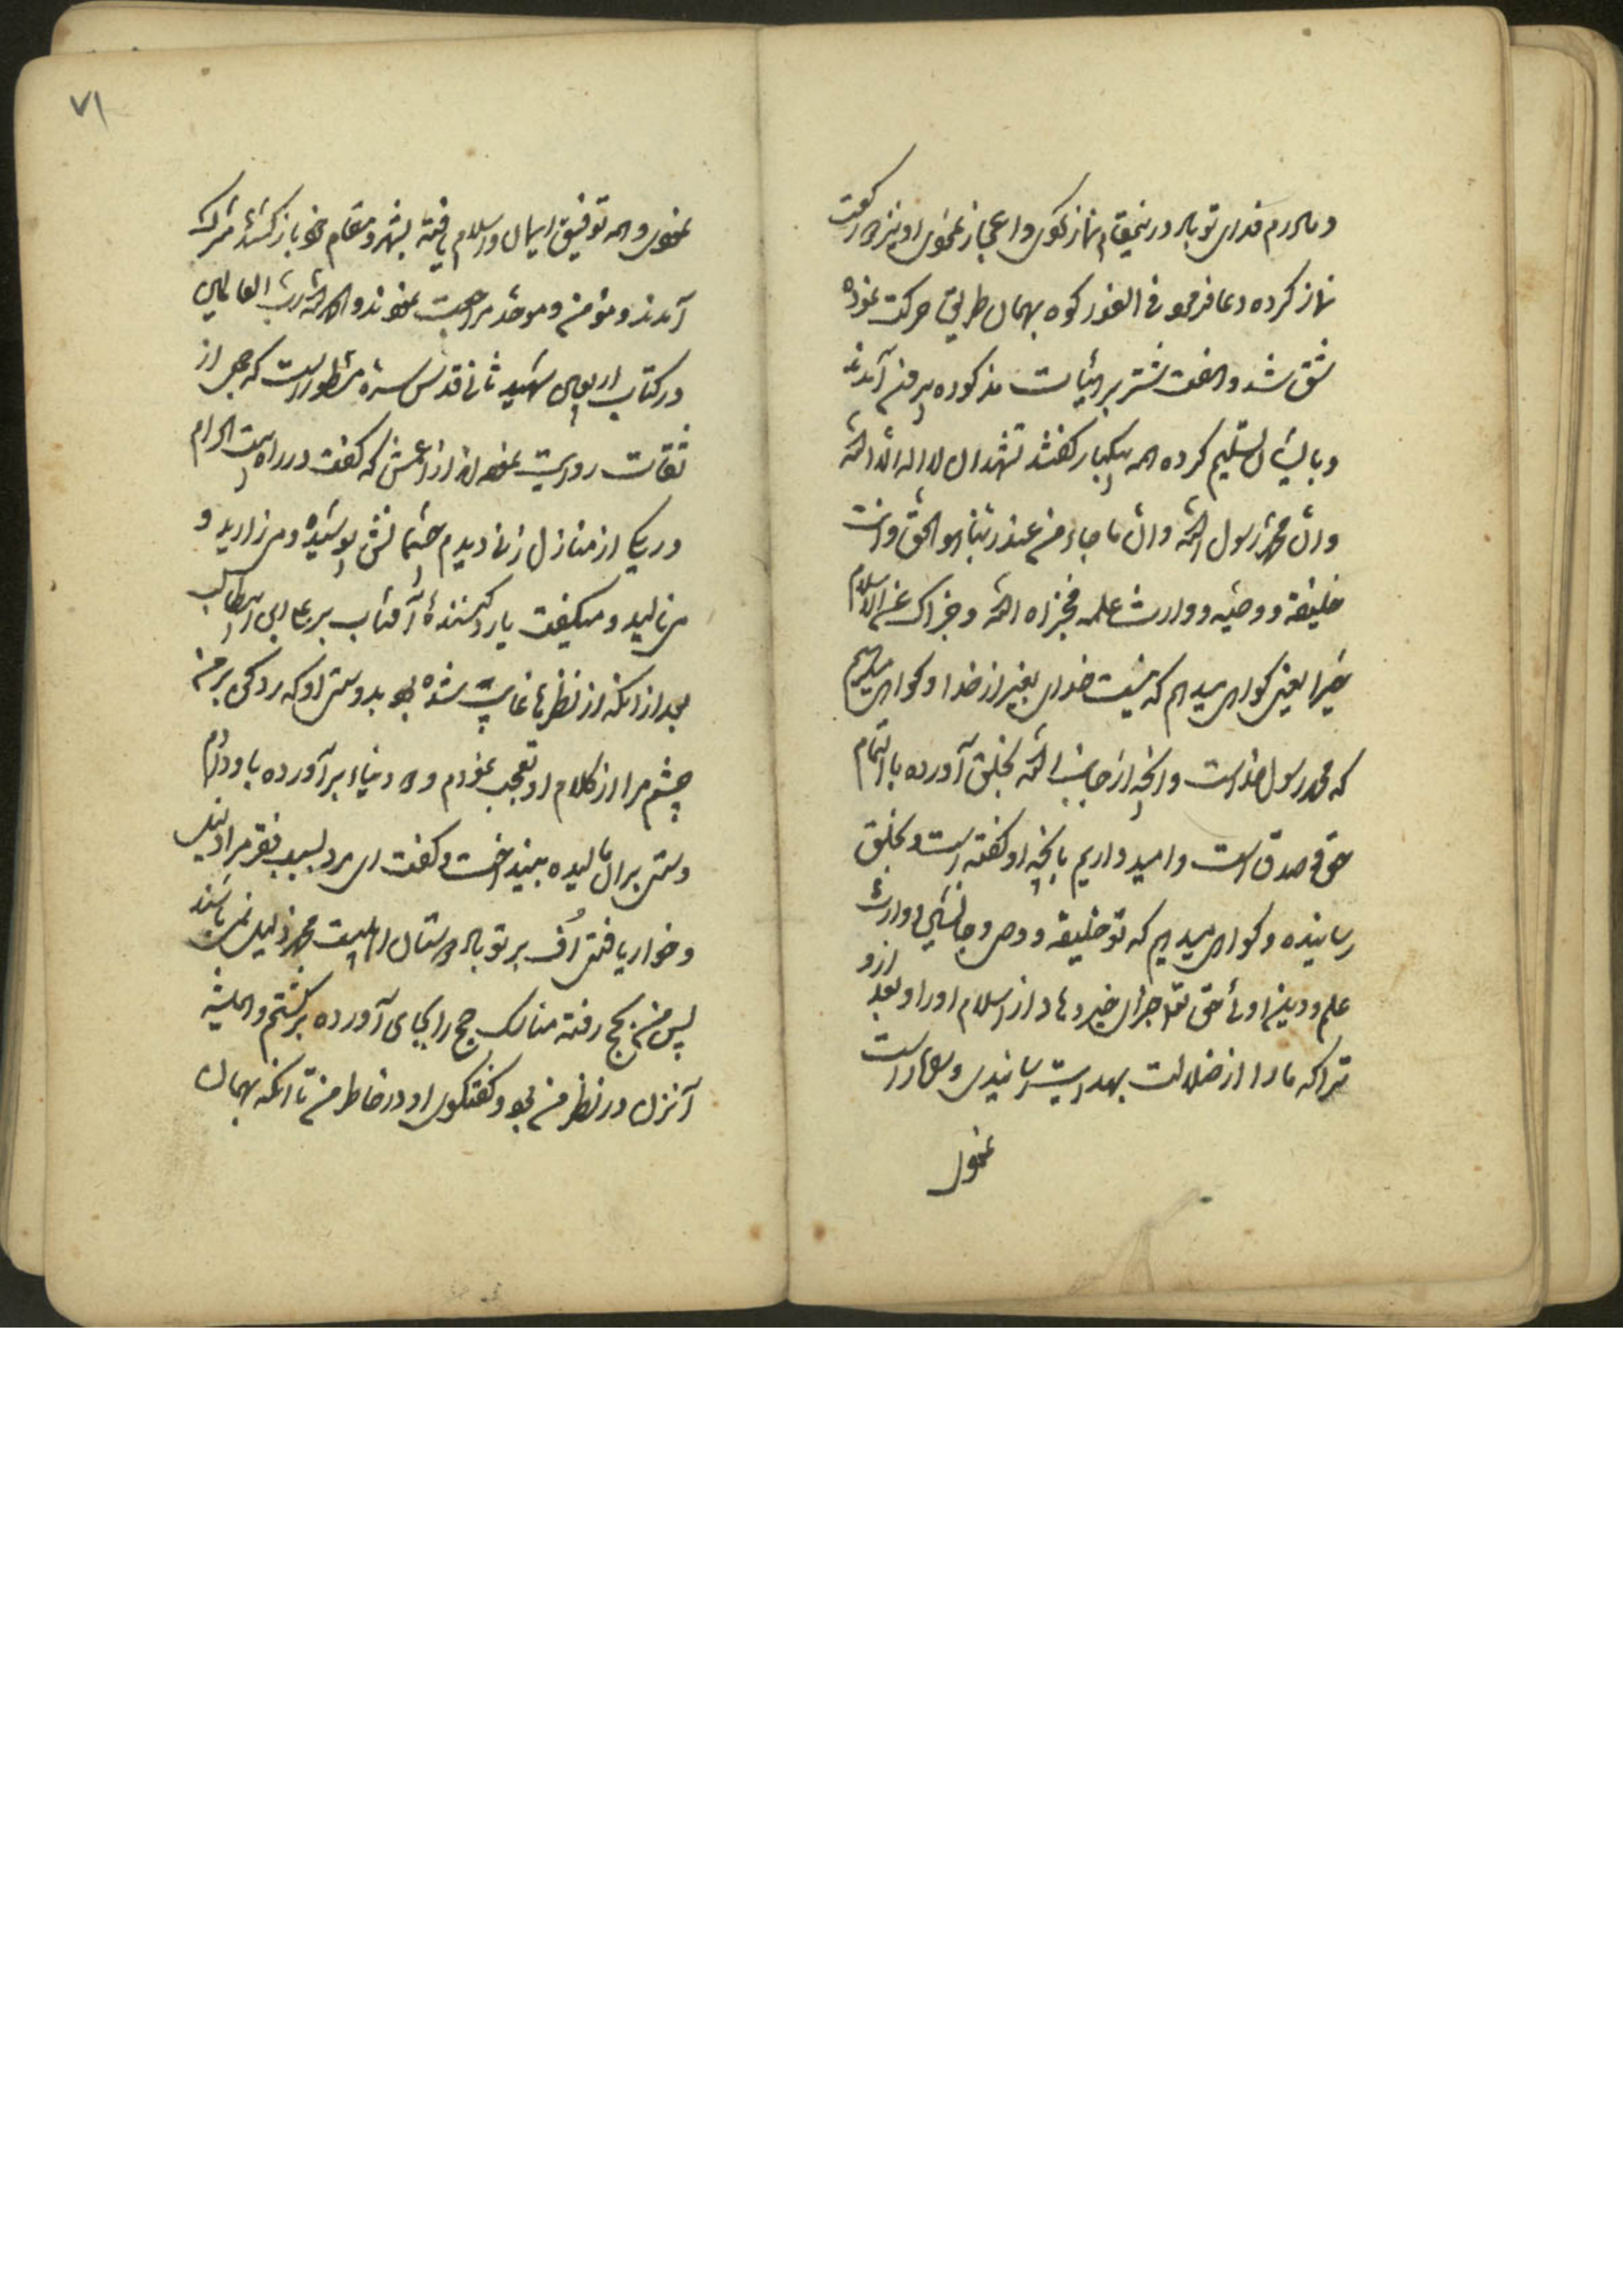 و مادرم فدای تو باد در اینمقام نماز نکوی و اعجاز نموی او نیز دو رکعت
نماز کرده دعا فرمود فی الفور کوه بهمان طریق حرکت نموده
شق شد و هفت شتر بر هیات مذکوره بیرون آمدند
و بایشان تسلیم کرده همه بیکبار گفتند نشهد ان لا اله الا الله
وان محمدا رسول الله وان ما جاء من عند ربنا هو الحق وانت
خلیفته و وصیه و وارث علمه فجزاه الله و جزاک عن الاسلام
خیرا یعنی گواهی میدهیم که نیست خدای بغیر از خدا و گواهی میدهیم
که محمد رسول خداست و آنچه از جانب الله بخلق آورده بالتمام
حق و صدق است و امید داریم بآنچه او گفته است و بخلق
رسانیده و گواهی میدهیم که تو خلیفه و وصی و جانشین و وارث
علم و دین اوئی حق تعالی جزای خیر دهاد از اسلام او را و بعد ازو
ترا که ما را از ضلالت بهدایت رسانیدی و راه راست
نمودی
۷۱
نمودی و همه توفیق ایمان و اسلام یافته بشهر و مقام خود بازگشتند مشرک
آمدند و مؤمن و موحد مراجعت نمودند و الحمد لله رب العالمین
در کتاب اربعین شهید ثانی قدس سره مسطور است که جمعی از
ثقات روایت نموده‌اند از اعمش که گفت در راه بیت الحرام
در یکی از منازل زنی دیدم چشمانش پوشیده و می‌زارید و
می‌نالید و میگفت یا رد کننده آفتاب بر علی ابن ابیطالب
بعد از آنکه از نظرها غایب شده بود بدوستی او که رد کنی بر من
چشم مرا از کلام او تعجب نمودم و دو دینار برآورده باو دادم
دستی بران مالیده بینداخت و گفت ای مرد بسبب فقر مرا ذلیل
و خوار یافتی اُف بر تو باد دوستان اهلبیت محمد ذلیل نمی‌باشند
پس من بحج رفته مناسک حج را بجای آورده برگشتم و همیشه
آنزن در نظر من بود و گفتگوی او در خاطر من تا آنکه بهمان